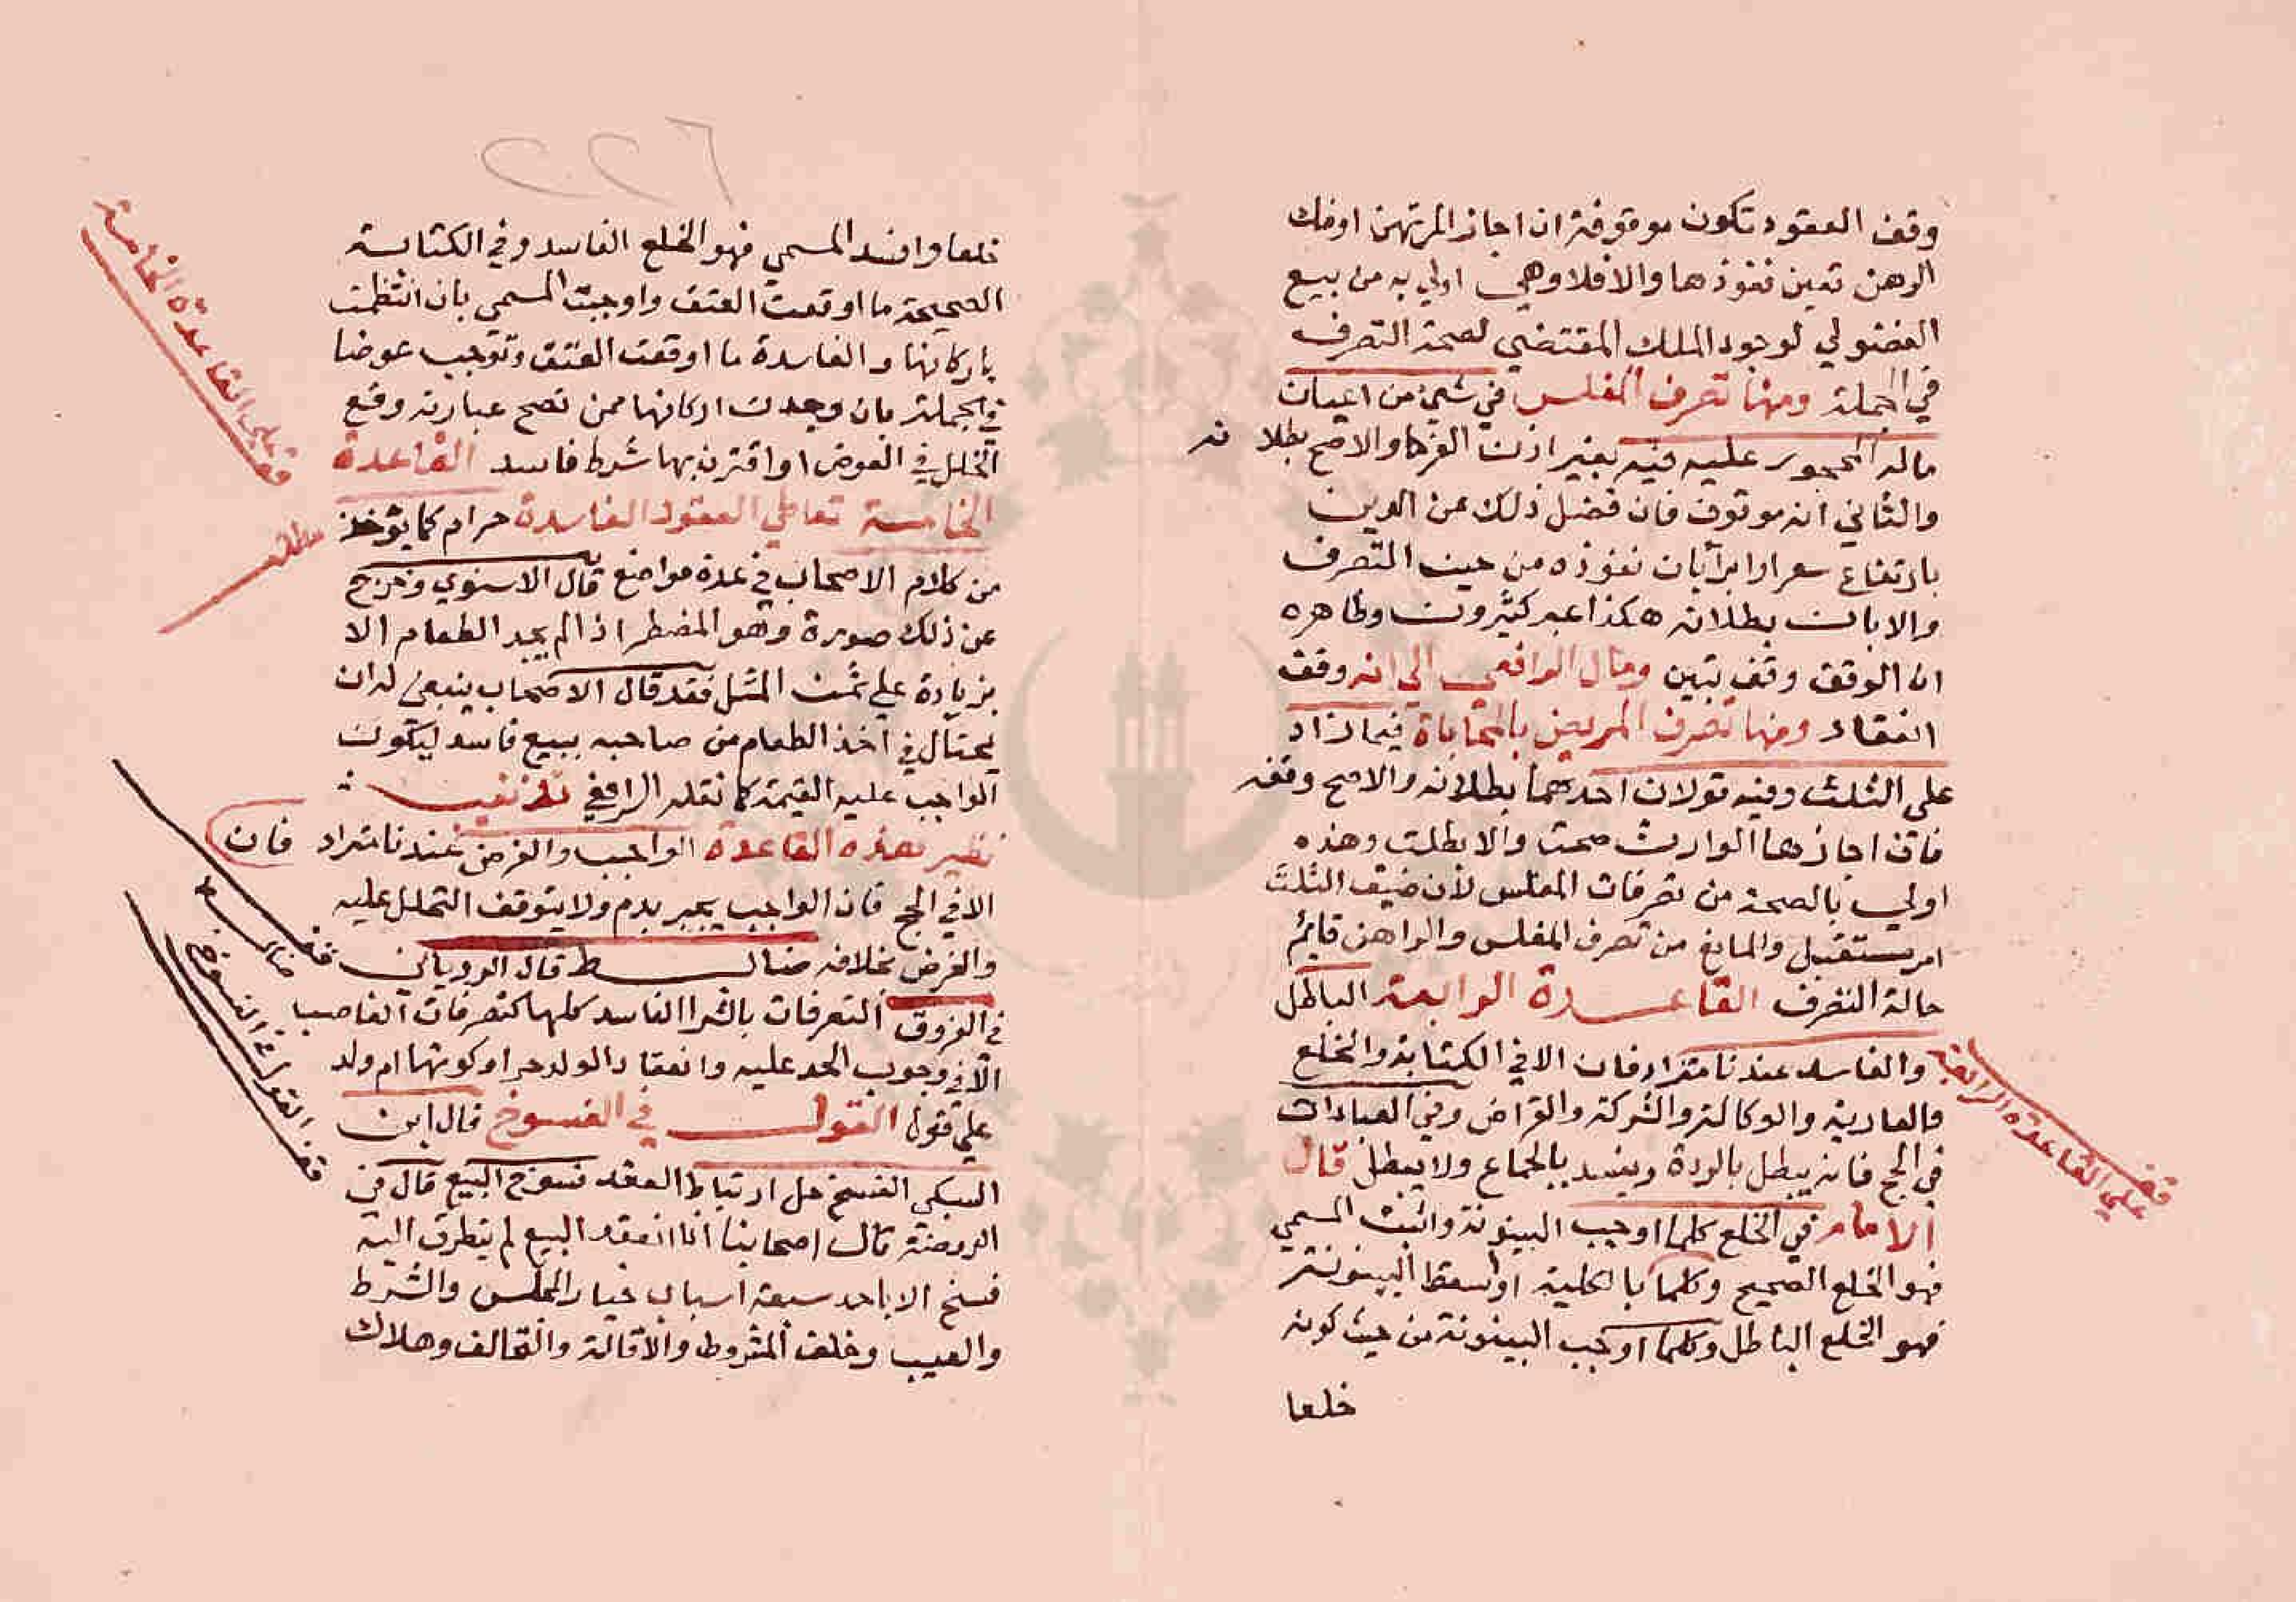 وقف العقود تكون موقوفة ان اجاز المرتهن او فك
الرهن تعين نفوذها والا فلا وهي اولي به من بيع
الفضولي لوجود الملك المقتضي لصحة التصرف
في الجملة ومنها تصرف المفلس في شيء من اعيان
ماله المحجور عليه فيه بغير اذن الغرما والاصح بطلانه
والثاني انه موقوف فان فضل ذلك عن الدين
بارتفاع سعر او ابرا بان نفوذه من حين التصرف
والا بان بطلانه هكذا عبر كثيرون وظاهره
ان الوقف وقف تبين ومال الرافعي الي انه وقف
انعقاد ومنها تصرف المريض بالمحاباة فيما زاد
على الثلث وفيه قولان احدهما بطلانه والاصح وقفه
فان اجازها الوارث صحت والا بطلت وهذه
اولي بالصحة من تصرفات المفلس لان ضيق الثلث
امر مستقبل والمانع من تصرف المفلس والراهن قائم
حالة التصرف القاعدة الرابعة الباطل
والفاسد عندنا مترادفان الا في الكتابة والخلع
والعارية والوكالة والشركة والقراض وفي العبادات
في الحج فانه يبطل بالردة ويفسد بالجماع ولا يبطل قال
الامام في الخلع كلما اوجب البينونة واثبت المسمي
فهو الخلع الصحيح وكلما بالكلية او اسقط البينونة
فهو الخلع الباطل وكلما اوجب البينونة من حيث كونه
خلعا
قف على القاعدة الرابعة
٢٢٦
خلعا وافسد المسمي فهو الخلع الفاسد وفي الكتابة
الصحيحة ما اوقعت العتق واوجبت المسمي بان انتظمت
باركانها والفاسدة ما اوقعت العتق وتوجب عوضا
في الجملة بان وجدت اركانها ممن تصح عبارته وقع
الخلل في العوض او اقترن بها شرط فاسد القاعدة
الخامسة تعاطي العقود الفاسدة حرام كما يؤخذ
من كلام الاصحاب في عدة مواضع قال الاسنوي وخرج
عن ذلك صورة وهو المضطر اذا لم يجد الطعام الا
بزيادة علي ثمن المثل فقد قال الاصحاب ينبغي له ان
يحتال في اخذ الطعام من صاحبه ببيع فاسد ليكون
الواجب عليه القيمة كما نقله الرافعي تذنيب
نظير هذه القاعدة الواجب والفرض عندنا مترادفان
الا في الحج فان الواجب يجبر بدم ولا يتوقف التحلل عليه
والفرض بخلافه ضابط قال الروياني
في الفروق التصرفات بالشرا الفاسد كلها كتصرفات الغاصب
الا في وجوب الحد عليه وانعقاد الولد حرا وكونها ام ولد
علي قول القول في الفسوخ قال ابن
السبكي الفسخ حل ارتباط العقد فسوخ البيع قال في
الروضة قال اصحابنا اذا انعقد البيع لم يتطرق اليه
فسخ الا باحد سبعة اسباب خيار المجلس والشرط
والعيب وخلف المشروط والاقالة والتحالف وهلاك
قف علي القاعدة الخامسة
مطلب
قف ضابط
قف القول في الفسوخ